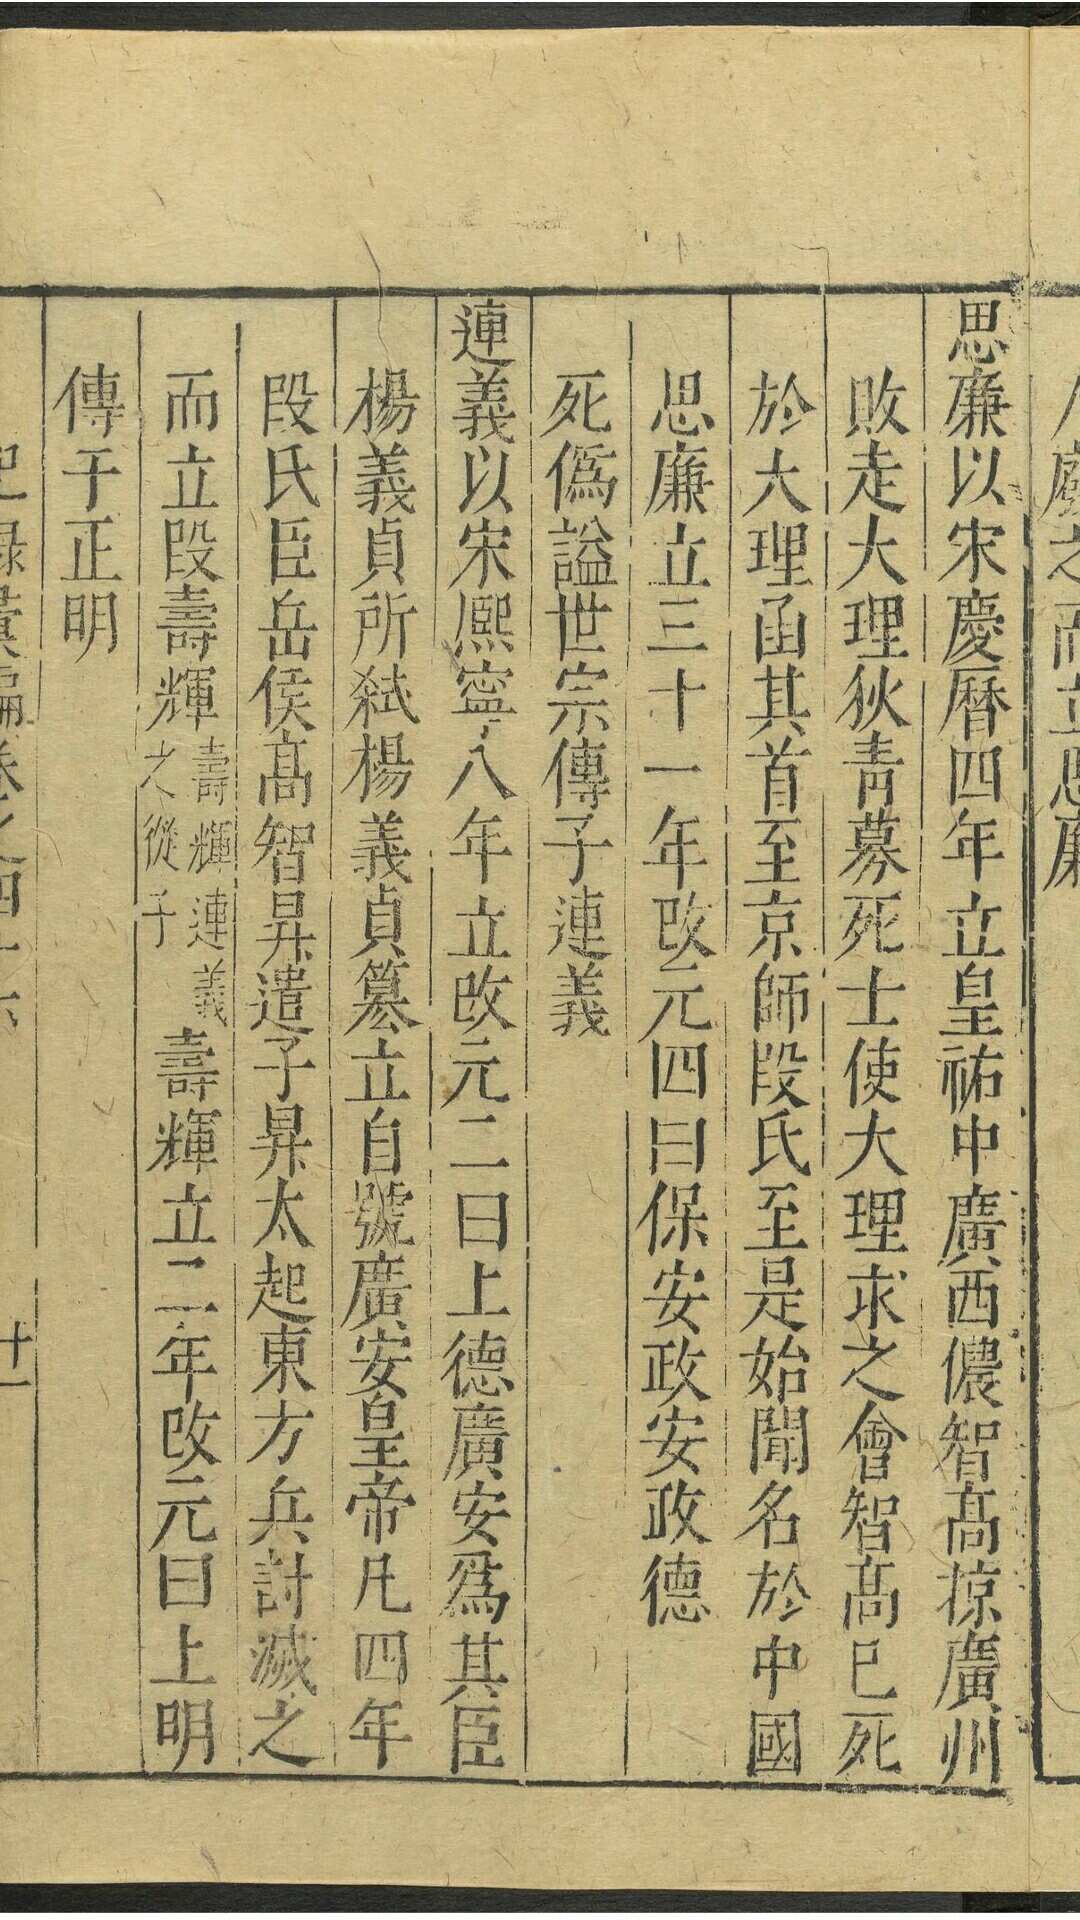 廢之而立思廉
思廉以宋慶曆四年立皇祐中廣西儂智高掠廣州
敗走大理狄青募死士使大理求之會智高已死
於大理函其首至京師段氏至是始聞名於中國
思廉立三十一年改元四曰保安政安政德
死僞謚世宗傳子連義
連義以宋熈寧八年立改元二曰上德廣安爲其臣
楊義貞所弑楊義貞簒立自號廣安皇帝凡四年
段氏臣岳侯高智昇遣子昇太起東方兵討滅之
而立段壽輝壽輝連義之從子壽輝立二年改元曰上明
傳于正明
卷之四十六
十一